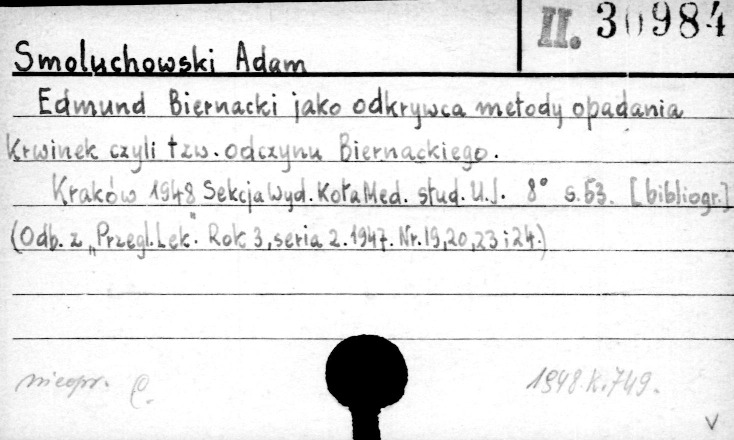 II. 30984
Smoluchowski Adam
Edmund Biernacki jako odkrywca metody opadania
Krwinek czyli tzw. odczynu Biernackiego.
Kraków 1948 Sekcja Wyd. Koła Med. stud. U.J. 8° s. 53. [bibliogr.]
(Odb. z „Przegl. Lek." Rok 3, seria 2. 1947. Nr. 19, 20, 23 i 24.)
nieopr. C.
1948.K.749.
V